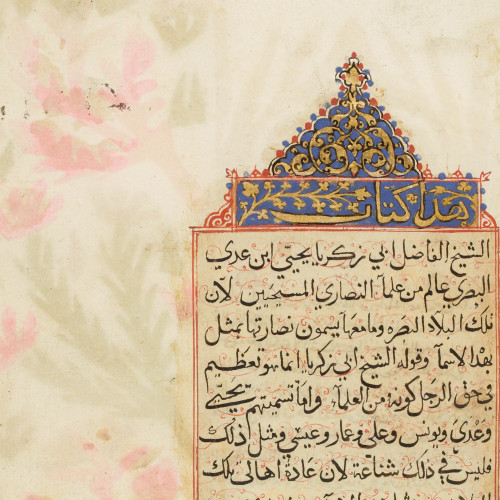 هذا كتاب
الشيخ الفاضل ابي زكريا يحيى ابن عدي
البصري عالم من علماء النصارى المسيحيين لان
تلك البلاد البصره وما معها يسمون نصارتها بمثل
بهذا الاسماء وقوله الشيخ ابي زكريا انما هو تعظيم
في حق الرجل كونه من العلماء واما تسميتهم يحيى
وعدي ويونس وعلي وعمار وعيسى ومثل ذلك
فليس في ذلك شناعة لان عادة اهالي تلك